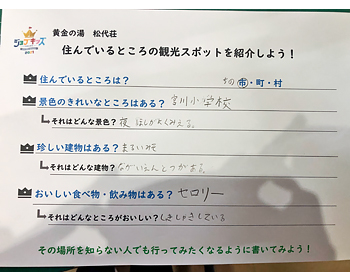 黄金の湯 松代荘
ジョブキッズ
住んでいるところの観光スポットを紹介しよう!
住んでいるところは? ちの 市・町・村
景色のきれいなところはある? 宮川小学校
それはどんな景色? 夜 ほしがよくみえる。
珍しい建物はある? まるいみそ
それはどんな建物? ながいえんとつがある。
おいしい食べ物・飲み物はある? セロリー
それはどんなところがおいしい? しきしゃきしている
その場所を知らない人でも行ってみたくなるように書いてみよう!